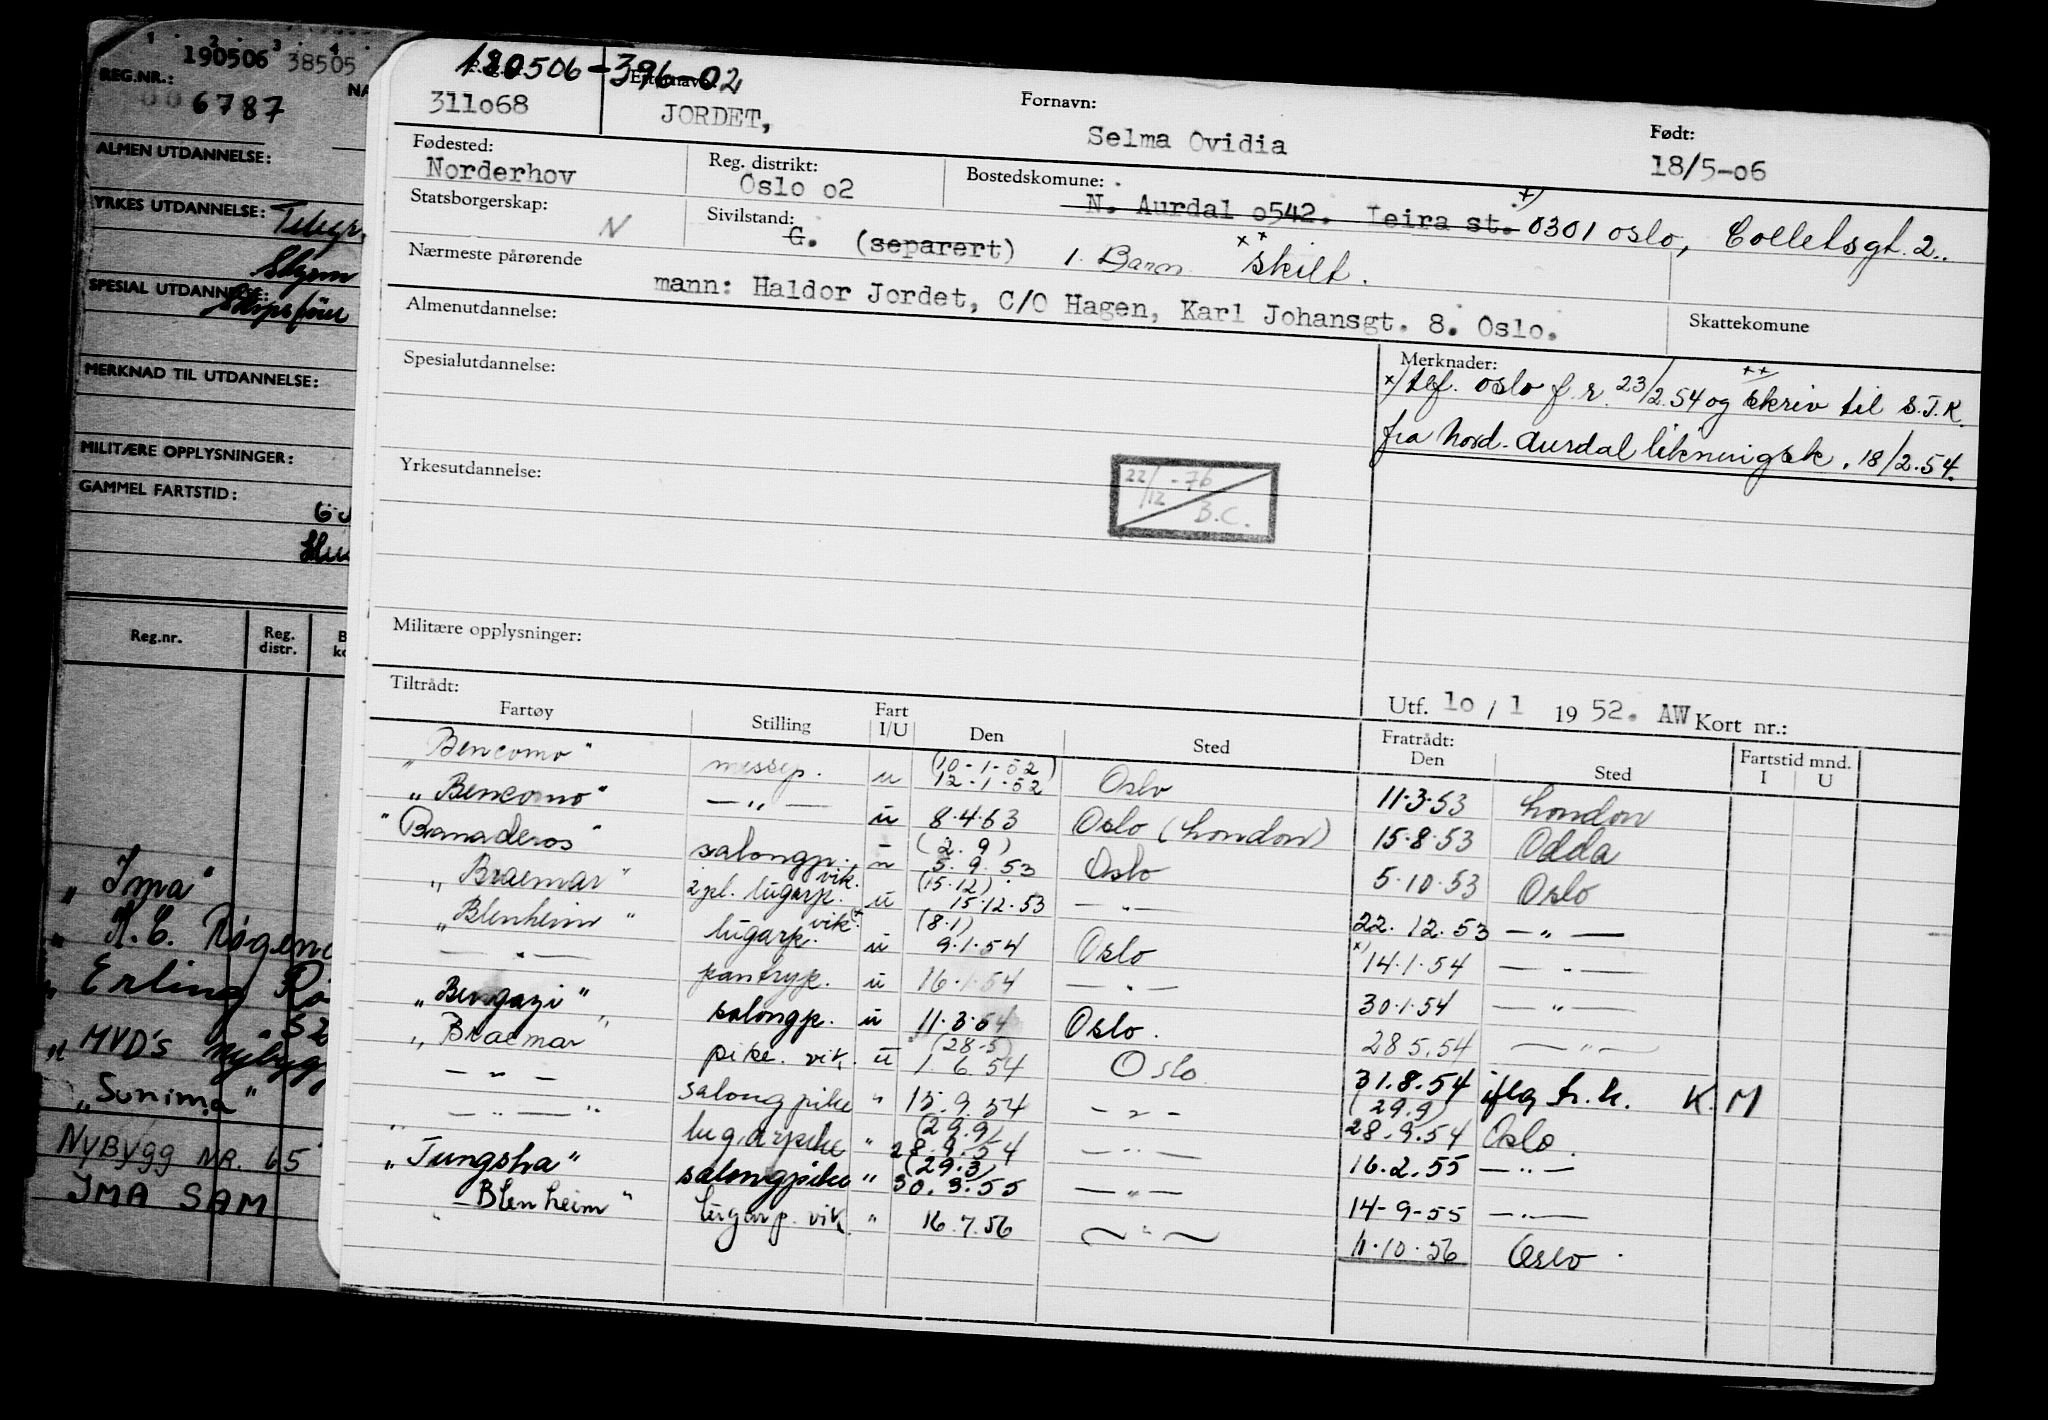 1 · 2 · 3 · 4 ·
190506 38505
REG.NR.:
NA
006787
ALMEN UTDANNELSE:
YRKES UTDANNELSE: Telegr.
Skysm
SPESIAL UTDANNELSE:
Skipsfører
MERKNAD TIL UTDANNELSE:
MILITÆRE OPPLYSNINGER:
GAMMEL FARTSTID:
Reg.nr.
Reg. distr.
„ Ima"
„ H. C. Røgen
„ Erling Rø
52
„ MVD's Nybygg
„Sunima"
NYBYGG NR. 65
IMA SAM
180506-396-02
Etternavn:
311068
JORDET,
Fornavn:
Selma Ovidia
Født:
18/5-06
Fødested:
Norderhov
Reg. distrikt:
Oslo 02
Bostedskomune:
N. Aurdal 0542. Leira st. x) 0301 Oslo, Colletsgt. 2..
Statsborgerskap:
N
Sivilstand:
G. (separert) 1. Barn xx skilt.
Nærmeste pårørende
mann: Haldor Jordet, C/O Hagen, Karl Johansgt. 8. Oslo.
Skattekomune
Almenutdannelse:
Merknader:
x) tlf. Oslo f.r. 23/2.54 og xx) skriv til S.T.K.
fra Nord-Aurdal likningsk. 18/2.54.
Spesialutdannelse:
Yrkesutdannelse:
22/12 -76
B.C.
Militære opplysninger:
Tiltrådt:
Utf. 10 / 1 19 52. AW Kort nr.:
Fartøy Stilling Fart I/U Den Sted Fratrådt: Den Sted Fartstid mnd. I U
„Bencomo" messep. u (10-1-52) 12-1-52 Oslo 11·3·53 London
„Bencomo" — „ — u 8·4·53 Oslo (London) 15·8·53 Odda
"Banaderos" salongp. u (2.9) 5.9.53 Oslo 5·10·53 Oslo
„Braemar" 2 pl. lugarp. vik. u (15.12) 15.12.53 — „ — 22.12.53 — „ —
„Blenheim" lugarp. vik. u (8.1) 9.1.54 Oslo x) 14.1.54 — „ —
— „ — pantryp. u 16.1.54 — „ — 30.1.54 — „ —
„Bengazi" salongp. u 11.3.54 Oslo. 28.5.54 — „ —
„Braemar" pike. vik. u (28-5) 1.6.54 Oslo 31.8.54 iflg h.k. K.M
— „ — salongpike " 15.9.54 — „ — (29.9) 28.9.54 Oslo.
— „ — lugarpike " (29.9) 28.9.54 — „ — 16.2.55 — „ —
„Tungsha" salongpike " (29.3) 30.3.55 — „ — 14-9-55 — „ —
„Blenheim" lugarp. vik. " 16.7.56 — „ — 11·10·56 Oslo